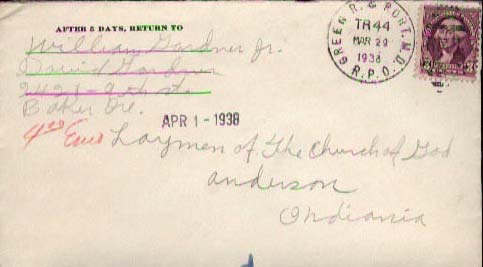 AFTER 5 DAYS, RETURN TO
William Gardner Jr.
David Gardner
2421-9th st.
Baker Ore.
GREEN R. & PORT. M.D.
TR44
MAR 29
1938
R.P.O.
APR 1 - 1938
Laymen of The Church of God
anderson
Indiania